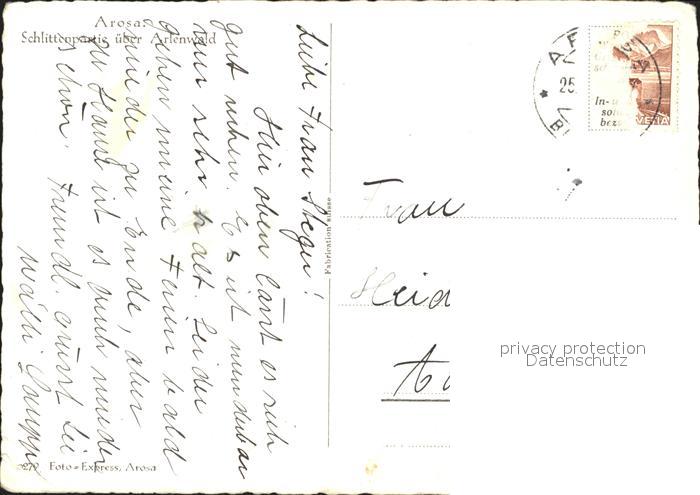 Arosa.
Schlittenpartie über Arlenwald
Liebe Frau Steger!
Hier oben lässt es sich
gut ruhen. Es ist wunderbar
nur sehr kalt. Leider
gehen meine Ferien bald
wieder zu Ende, aber
zu Hause ist es auch wieder
schön. Freundl. grüsst Sie
Walli
Fabrication Suisse
279 Foto=Express, Arosa
25.
In- u
bez
HELVETIA
Frau
Heid
privacy protection
Datenschutz